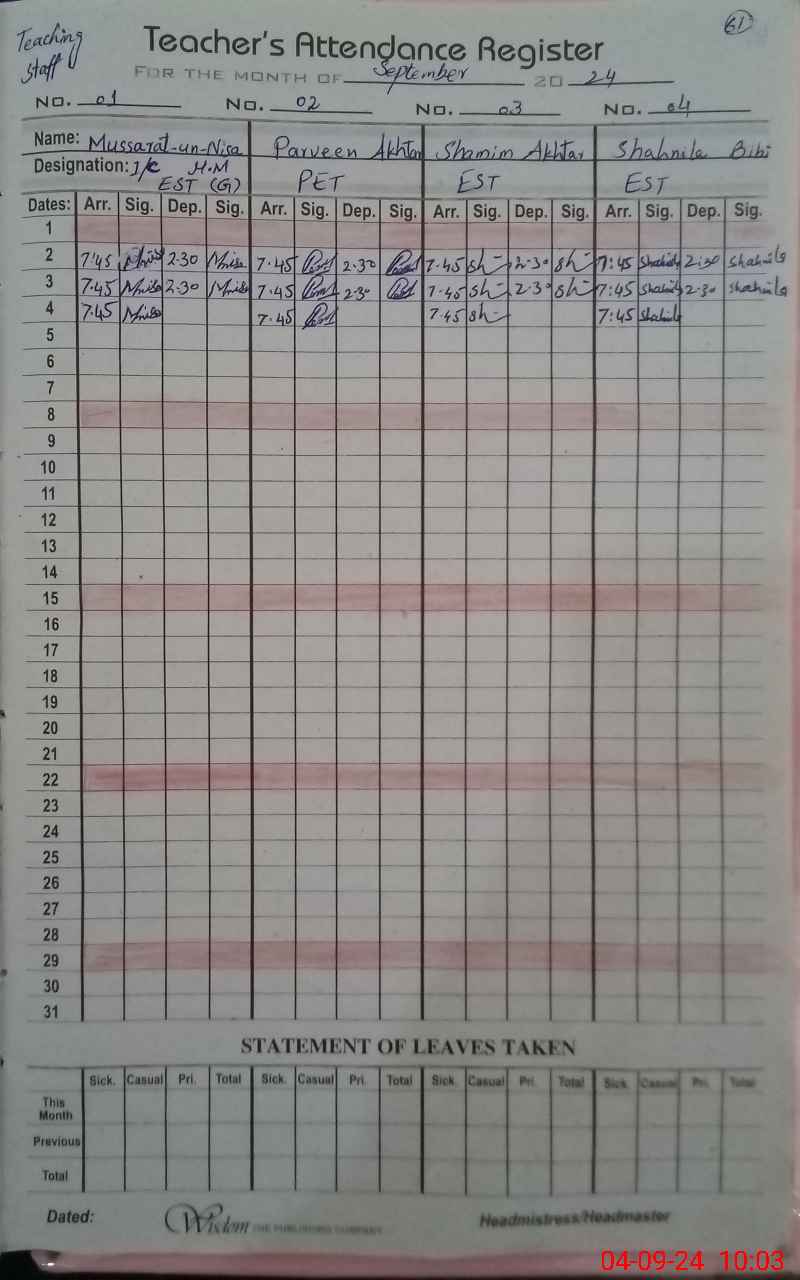 61
Teaching
Staff
Teacher's Attendance Register
FOR THE MONTH OF September 20 24
No. 01 No. 02 No. 03 No. 04
Name: Mussarat-un-Nisa Parveen Akhtar Shamim Akhtar Shahnila Bibi
Designation: I/C H.M
EST (G) PET EST EST
Dates: Arr. Sig. Dep. Sig. Arr. Sig. Dep. Sig. Arr. Sig. Dep. Sig. Arr. Sig. Dep. Sig.
1
2 7:45 Mnisa 2-30 Mnisa 7.45 2.30 7.45 Sh 2.30 Sh 7:45 Shahnila 2:30 Shahnila
3 7.45 Mnisa 2.30 Mnisa 7.45 2.30 7.45 Sh 2.30 Sh 7:45 Shahnila 2.30 Shahnila
4 7.45 Mnisa 7.45 7.45 Sh 7:45 Shahnila
5
6
7
8
9
10
11
12
13
14
15
16
17
18
19
20
21
22
23
24
25
26
27
28
29
30
31
STATEMENT OF LEAVES TAKEN
Sick. Casual Pri. Total Sick. Casual Pri. Total Sick. Casual Pri. Total Sick. Casual Pri. Total
This
Month
Previous
Total
Dated: Wisdom THE PUBLISHING COMPANY Headmistress/Headmaster
04-09-24 10:03